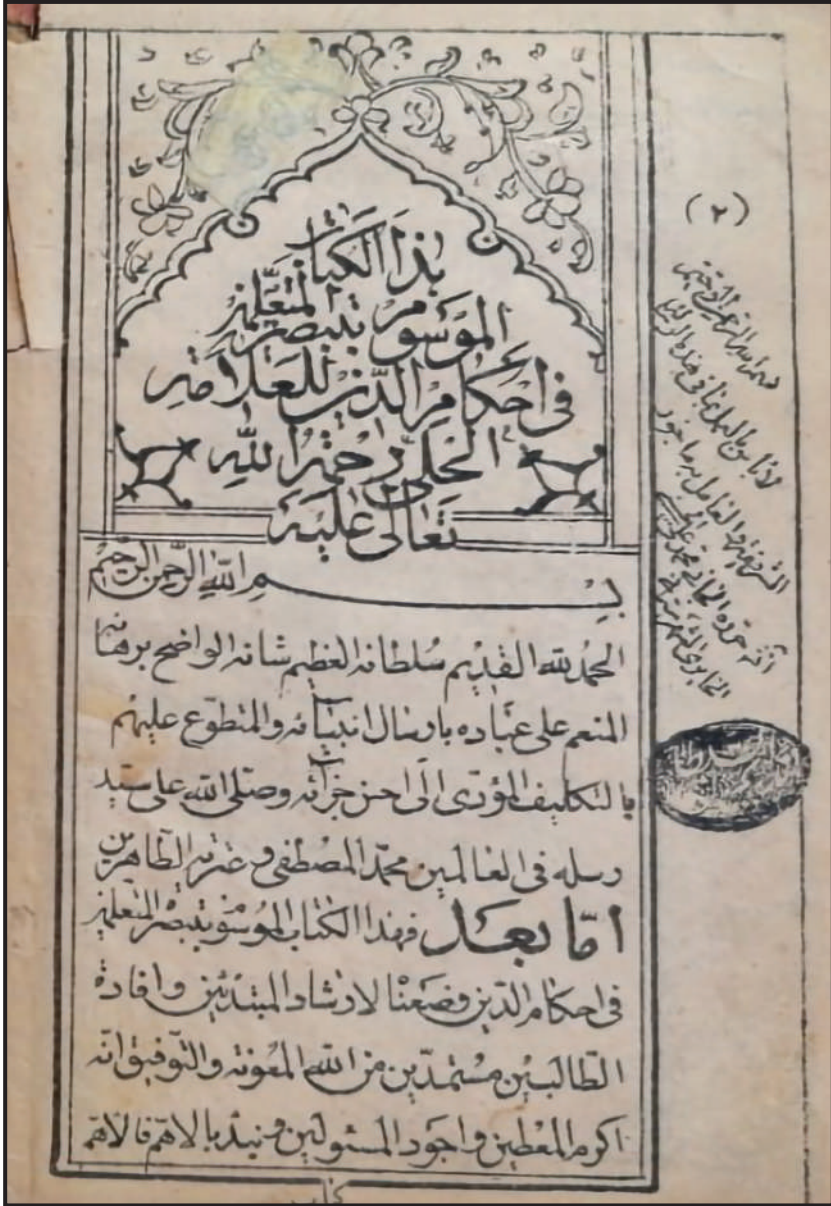 هذا الكتاب
الموسوم بتبصرة المتعلمين
في احكام الدين للعلامة
الحلي رحمة الله
تعالى عليه
بسم الله الرحمن الرحيم
الحمد لله القديم سلطانه العظيم شانه الواضح برهانه
المنعم على عباده بارسال انبيائه والمتطوع عليهم
بالتكليف المؤدى الى احسن جزائه وصلى الله على سيد
رسله في العالمين محمد المصطفى وعترته الطاهرين
اما بعد فهذا الكتاب الموسوم بتبصرة المتعلمين
في احكام الدين وضعنا لارشاد المبتدئين وافادة
الطالبين مستمدين من الله المعونة والتوفيق انه
اكرم المعطين واجود المسئولين ونبدء بالاهم فالاهم
(٢)
بسم الله الرحمن الرحيم
العمل بما في هذه الرسالة
الشريفة والعامل بها ماجور